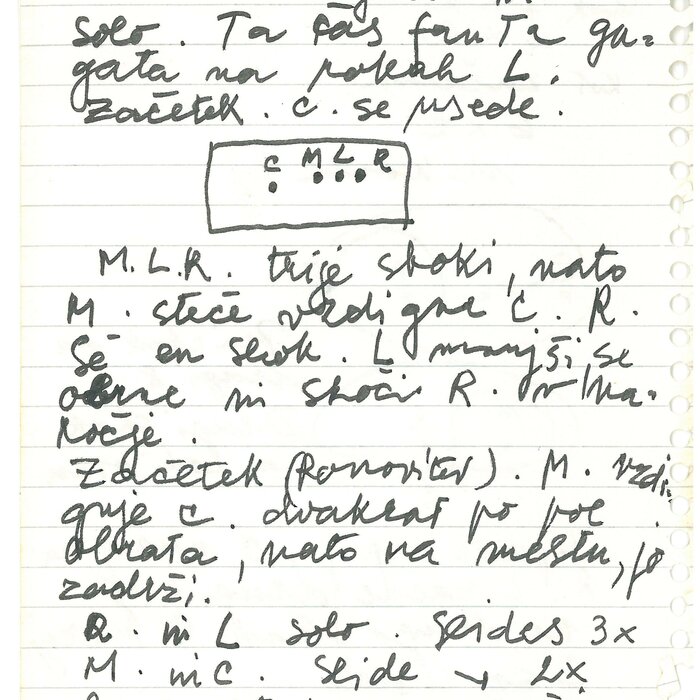 solo. Ta čas fanta ga=
gata na rokah L.
Začetek. C. se usede.
C M L R
M.L.R. trije skoki, nato
M. steče vzdigne C. R.
še en skok. L manjši se
obrne in skoči R. v na-
ročje.
Začetek (Ponovitev). M. vzdi-
guje C. dvakrat po pol
obrata, nato na mestu, jo
zadrži.
R. in L solo. 3x
M. in C. 2x